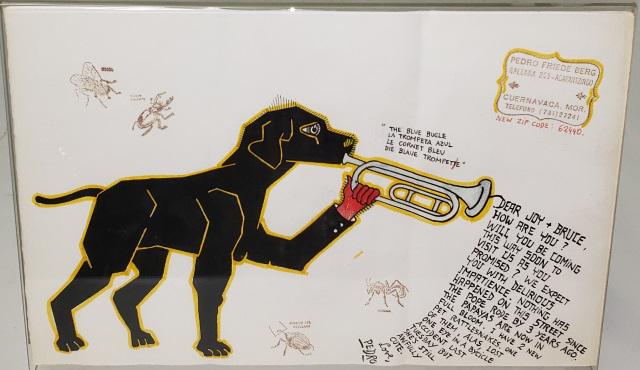 PEDRO FRIEDEBERG
CUERNAVACA, MOR.
TELEFONO (731)27241
NEW ZIP CODE: 62440.
"THE BLUE BUGLE
LA TROMPETA AZUL
LE CORNET BLEU
DIE BLAUE TROMPETTE"
DEAR JOY + BRUCE,
HOW ARE YOU?
WILL YOU BE COMING
THIS WAY SOON TO
VISIT US AS YOU
PROMISED? WE EXPECT
YOU WITH DELIRIOUS
IMPATIENCE. NOTHING HAS
HAPPENED ON THIS STREET SINCE
THE POPE RODE BY 3 YEARS AGO.
THE PAPAYAS ARE NOW IN
FULL BLOOM. I HAVE 2 NEW
PET RATTLESNAKES, ONE
OF THEM, ALAS, LOST
ONE EYE IN A BICYCLE
ACCIDENT LAST
TUESDAY BUT
SHE'S STILL
AWFULLY
CUTE.
Love,
PEDRO